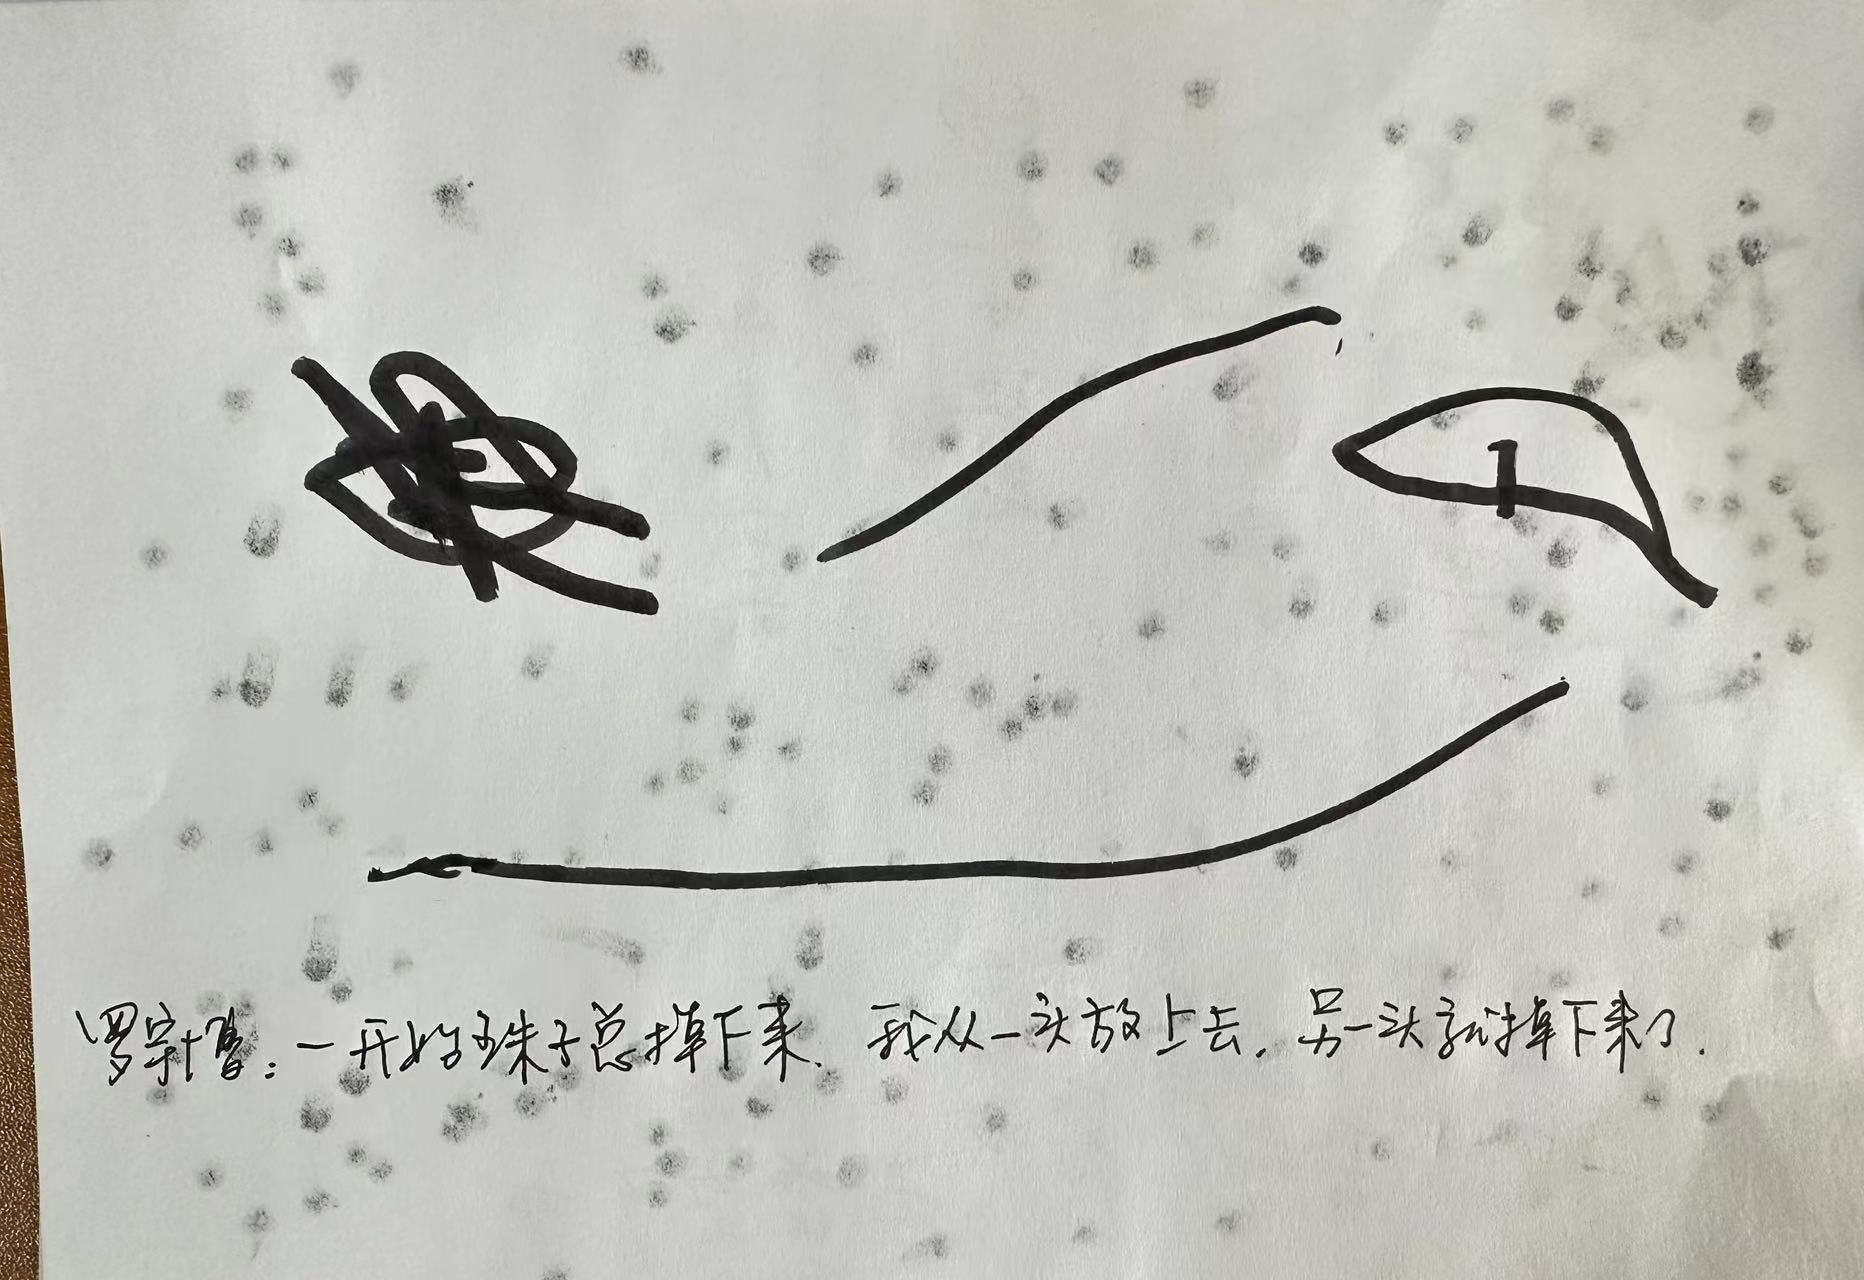 1
罗宗博：一开始珠子总掉下来，我从一头放上去，另一头就掉下来了．